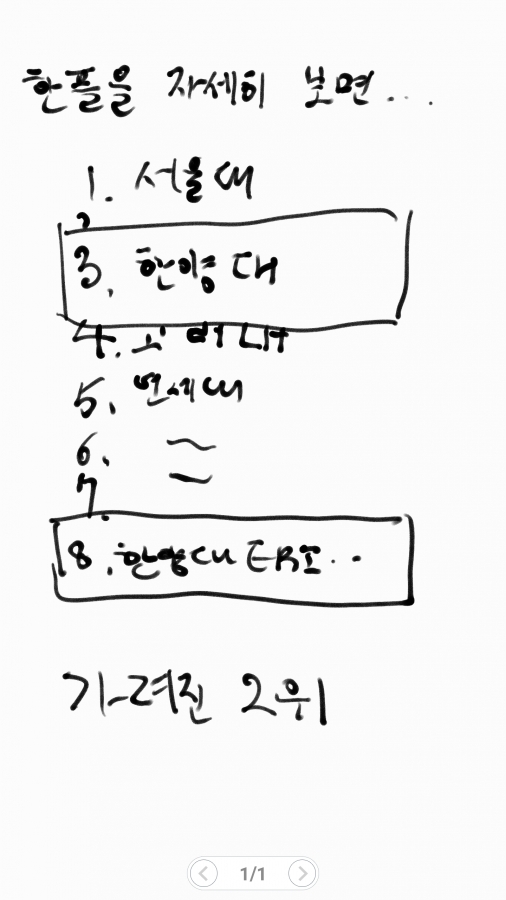 한플을 자세히 보면...
1. 서울대
2
3. 한양대
4. 고려대
5. 연세대
6.
7.
8. 한양대 ERI..
가려진 2위
1/1